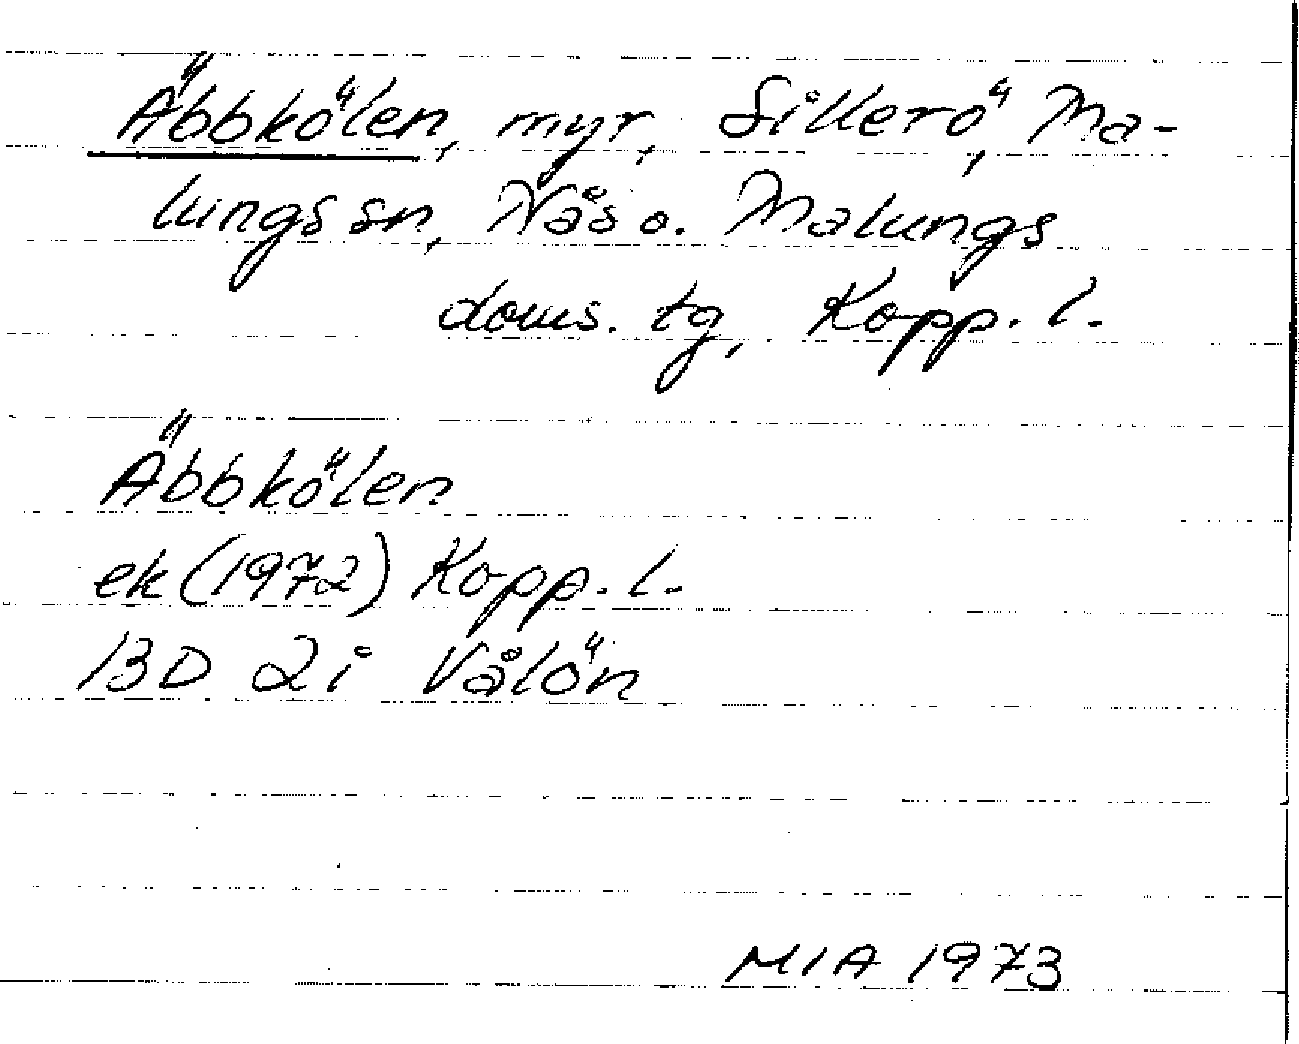 Äbbkölen, myr, Sillerö, Ma-
lungs sn, Nås o. Malungs
doms. tg, Kopp. l.
Äbbkölen
ek (1972) Kopp. l.
13D 2i Vålön
MIA 1973